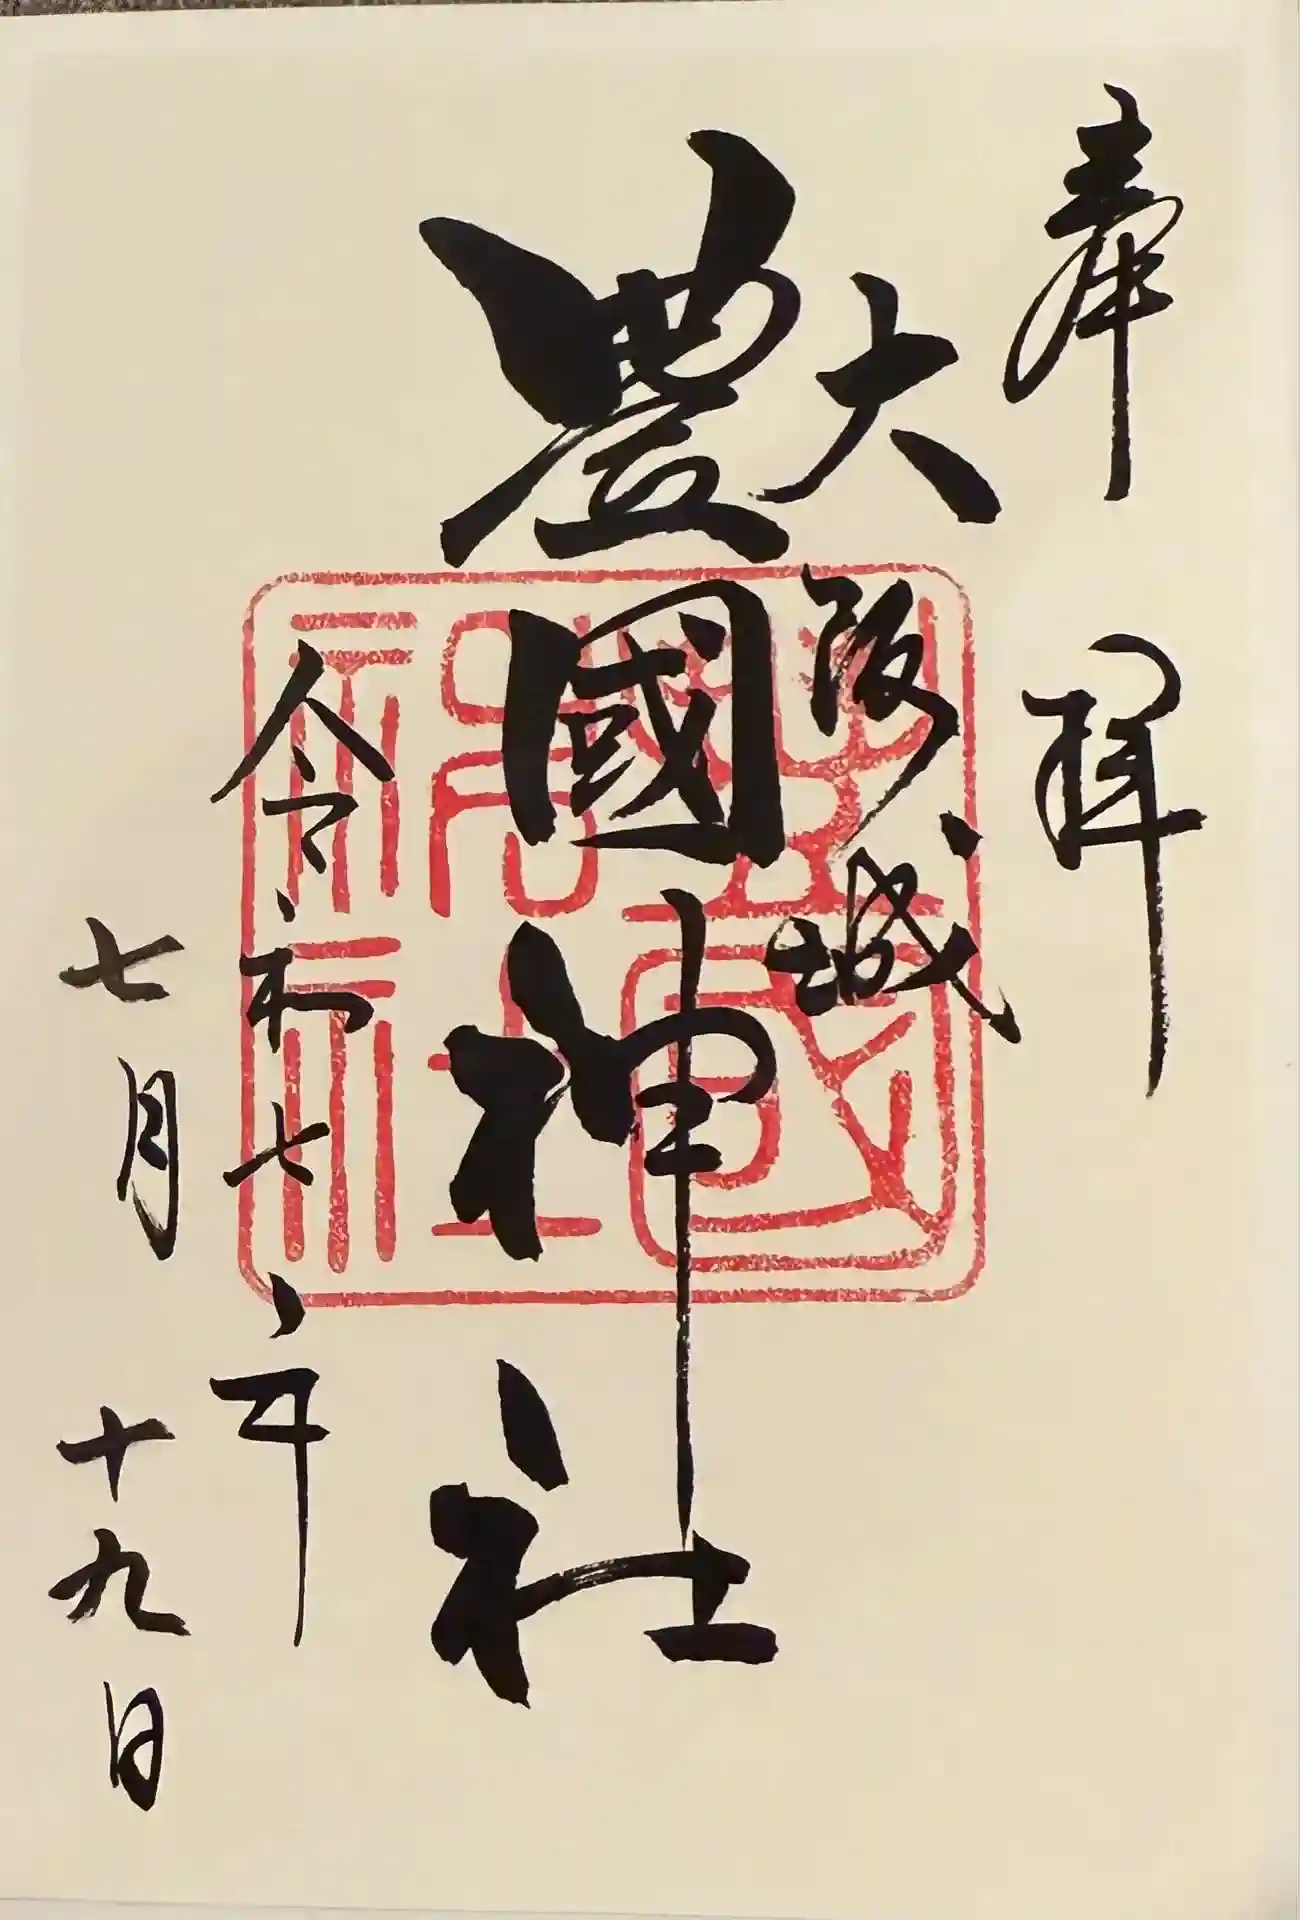 奉拝
大阪城
豊國神社
豊國神社
令和七年
七月十九日